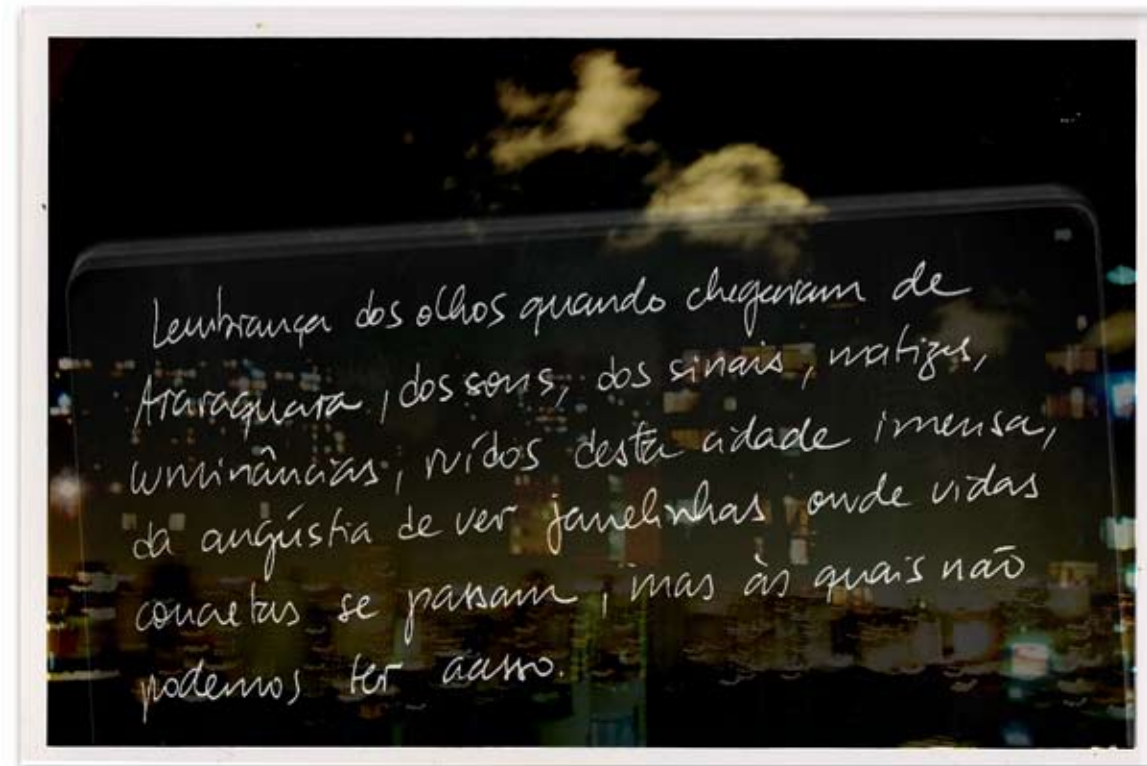 Lembrança dos olhos quando chegaram de
Araraquara, dos sons, dos sinais, matizes,
luminâncias, ruídos desta cidade imensa,
da angústia de ver janelinhas onde vidas
concretas se passam, mas às quais não
podemos ter acesso.